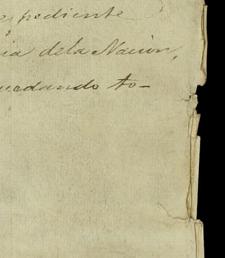 espediente
cia dela Nacion,
uedando to-